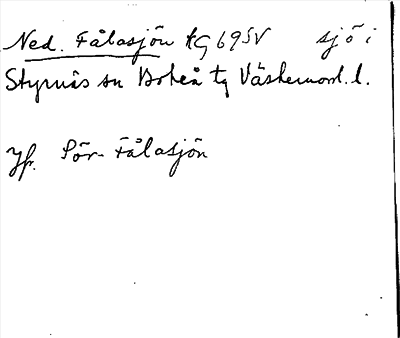 Ned. Fålasjön KG 69 SV sjö i
Styrnäs sn Boteå tg Västernorrl. l.
Jfr. Sör- Fålasjön